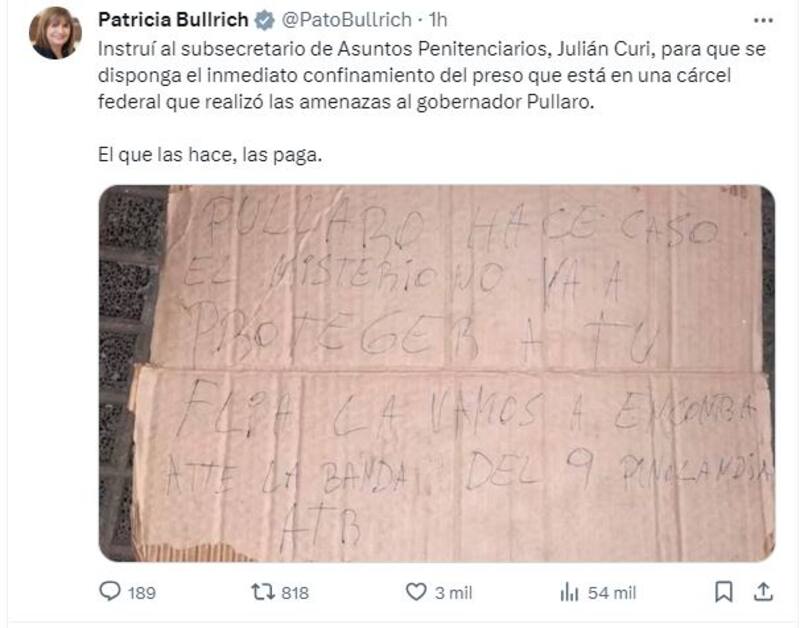 Patricia Bullrich @PatoBullrich · 1h
Instruí al subsecretario de Asuntos Penitenciarios, Julián Curi, para que se
disponga el inmediato confinamiento del preso que está en una cárcel
federal que realizó las amenazas al gobernador Pullaro.
El que las hace, las paga.
PULLARO HACE CASO
EL MISTERIO NO VA A
PROTEGER A TU
FLIA LA VAMOS A ENCONTRA
ATTE LA BANDA DEL 9 PINOLANDIA
ATB
189 818 3 mil 54 mil